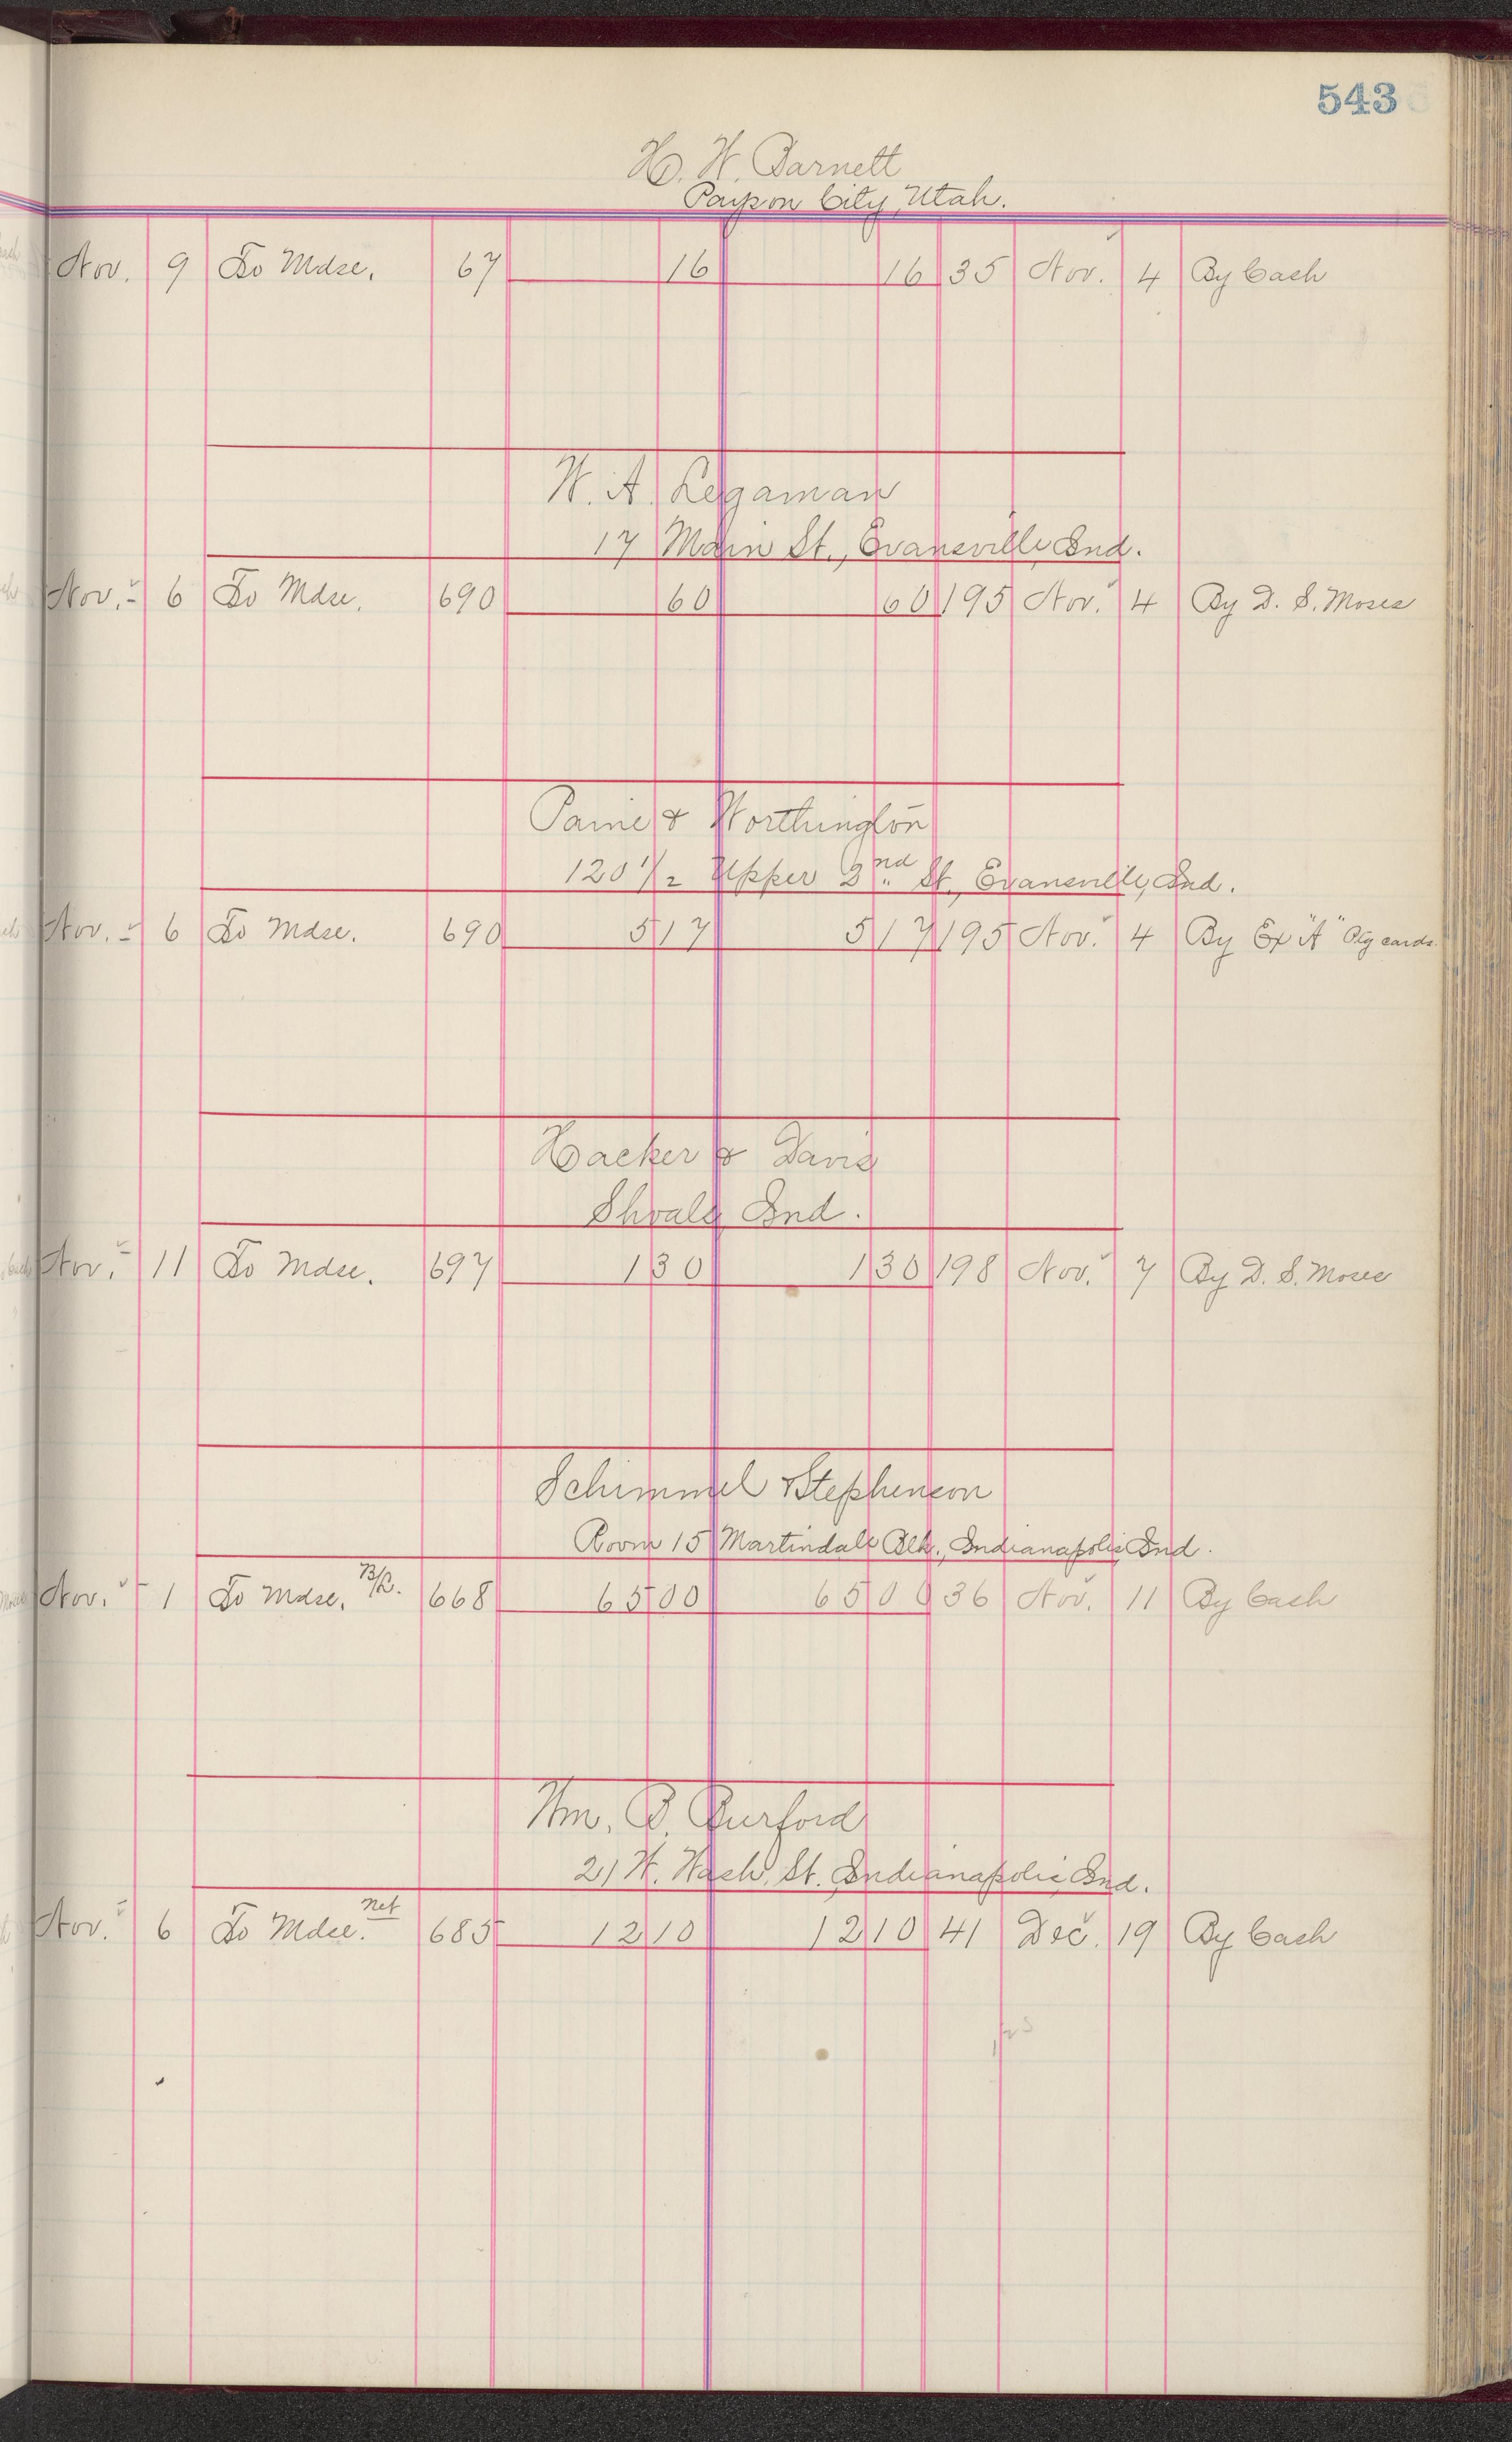 543
H. W. Barnett
Payson City, Utah.
Nov. 9 To Mdse. 67 16 16 35 Nov. 4 By Cash
W. A. Legaman
17 Main St., Evansville, Ind.
Nov. 6 To Mdse. 690 60 60 195 Nov. 4 By D. S. Moses
Paine & Worthington
120 1/2 Upper 2nd St., Evansville, Ind.
Nov. 6 To Mdse. 690 5 17 5 17 195 Nov. 4 By Ex "A" Plg cards.
Hacker & Davis
Shoals, Ind.
Nov. 11 To Mdse. 697 1 30 1 30 198 Nov. 7 By D. S. Moses
Schimmel & Stephenson
Room 15 Martindale Blk., Indianapolis, Ind.
Nov. 1 To Mdse. B/L. 668 65 00 65 00 36 Nov. 11 By Cash
Wm. B. Burford
21 W. Wash. St. Indianapolis, Ind.
Nov. 6 To Mdse. net 685 12 10 12 10 41 Dec. 19 By Cash